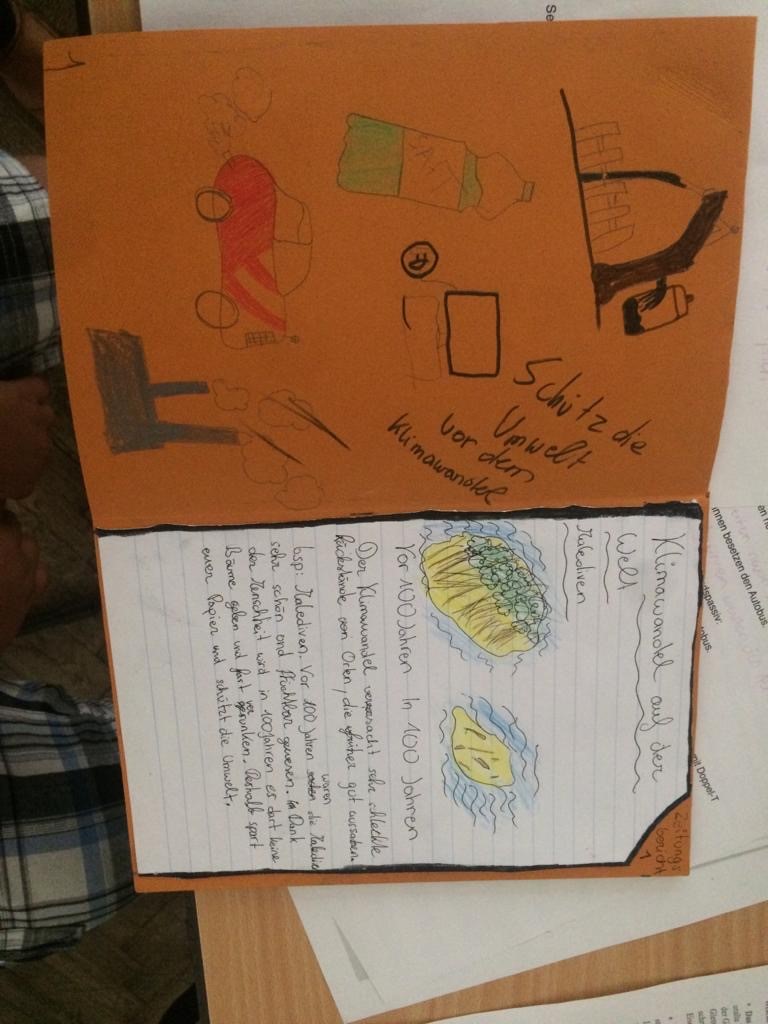 Schütz die
Umwelt
vor dem
Klimawandel
1
Zeitungs
bericht
1
Klimawandel auf der
Welt
Malediven
Vor 100 Jahren In 100 Jahren
Der Klimawandel verursacht sehr schlechte
Rückstände von Orten, die früher gut aussahen.
bsp: Malediven. Vor 100 Jahren waren die Maledive
sehr schön und früchtbar gewesen. Dank
der Menschheit wird in 100 Jahren es dort keine
Bäume geben und fast versunken. Deshalb spart
euer Papier und schützt die Umwelt.
Se
innen besetzen den Autobus.
dspassiv:
tobus.
mit Doppel-T